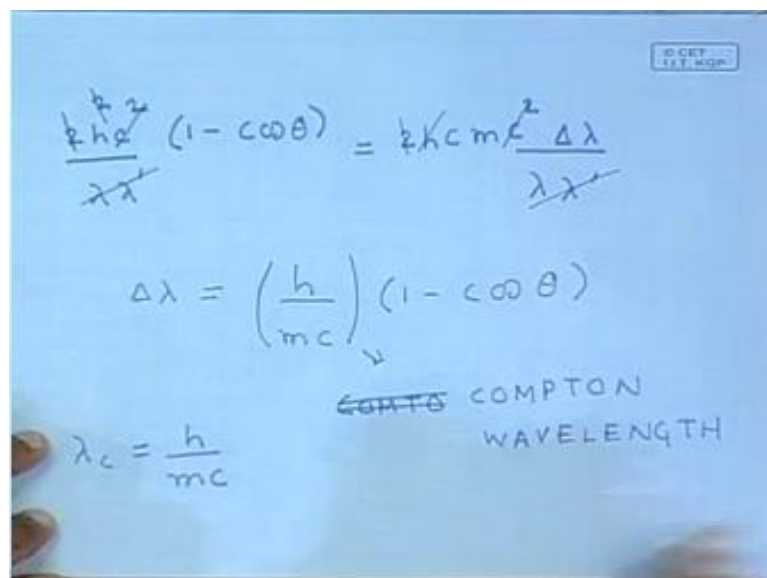 © CET
I.I.T. KGP
2h²c²/λλ' (1 - cos θ) = 2hc mc² Δλ/λλ'
Δλ = (h/mc) (1 - cos θ)
COMTO COMPTON
WAVELENGTH
λc = h/mc